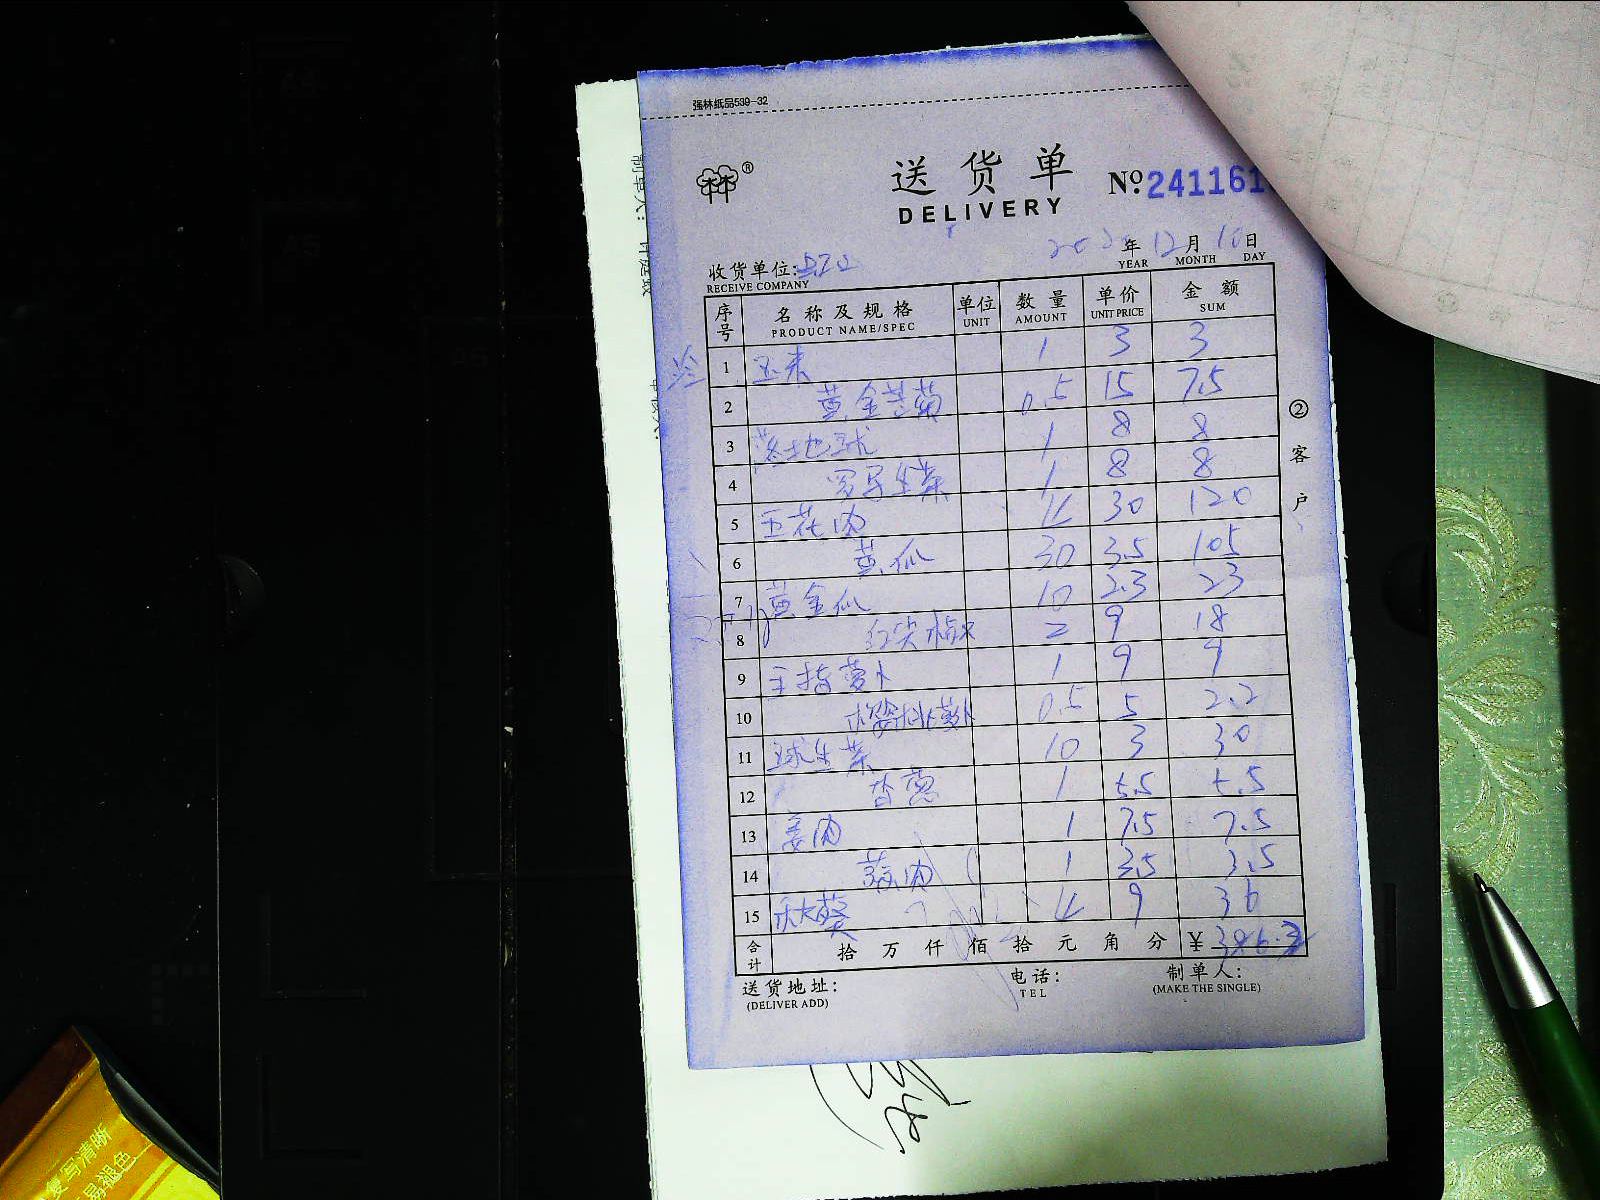 强林纸品539-32
送货单
DELIVERY
No. 241161
2020年12月10日
YEAR MONTH DAY
收货单位:
RECEIVE COMPANY
序号 名称及规格 单位 数量 单价 金额
PRODUCT NAME/SPEC UNIT AMOUNT UNIT PRICE SUM
1 玉米 1 3 3
2 黄金苦菊 0.5 15 7.5
3 落地球 1 8 8
4 罗马生菜 1 8 8
5 五花肉 4 30 120
6 黄瓜 30 3.5 105
7 黄金瓜 10 2.3 23
8 红尖椒 2 9 18
9 手指萝卜 1 9 9
10 0.5 5 2.2
11 球生菜 10 3 30
12 香葱 1 5.5 5.5
13 姜肉 1 7.5 7.5
14 蒜肉 1 3.5 3.5
15 秋葵 4 9 36
合计 拾 万 仟 佰 拾 元 角 分 ¥ 386.2
送货地址: 电话: 制单人:
(DELIVER ADD) TEL (MAKE THE SINGLE)
②客户
制单人:
复写清晰
易褪色